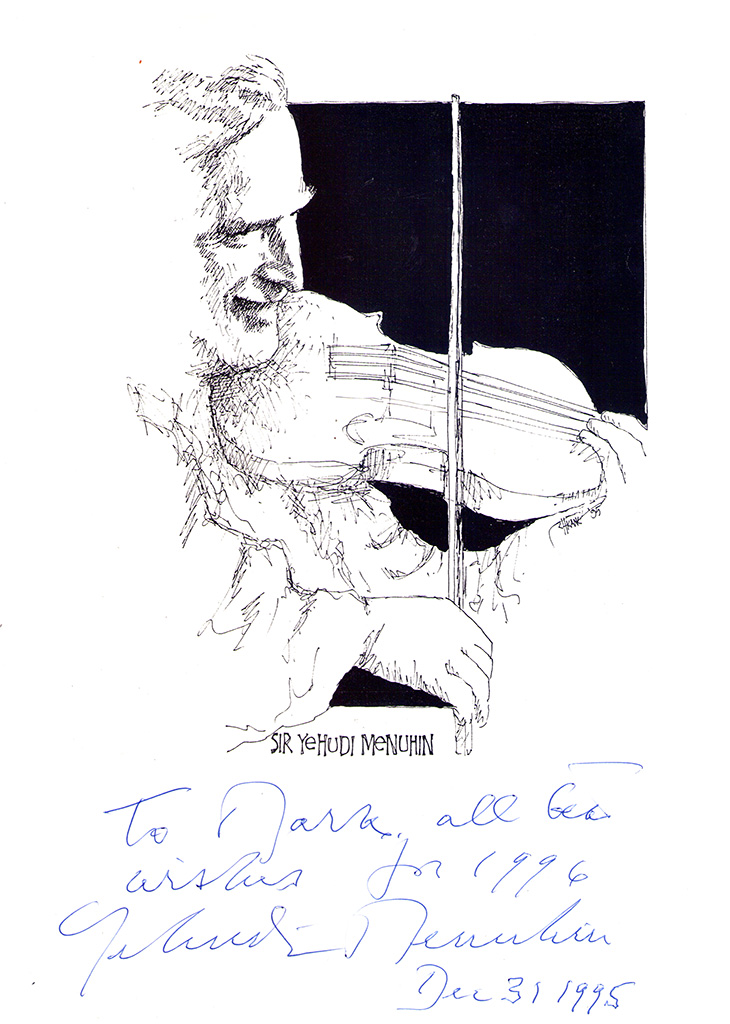 SIR YeHUDI MeNUHIN
To Mark, all best
wishes for 1996
Yehudi Menuhin
Dec 31 1995